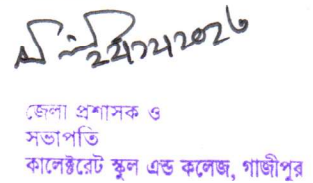 জেলা প্রশাসক ও
সভাপতি
কালেক্টরেট স্কুল এন্ড কলেজ, গাজীপুর